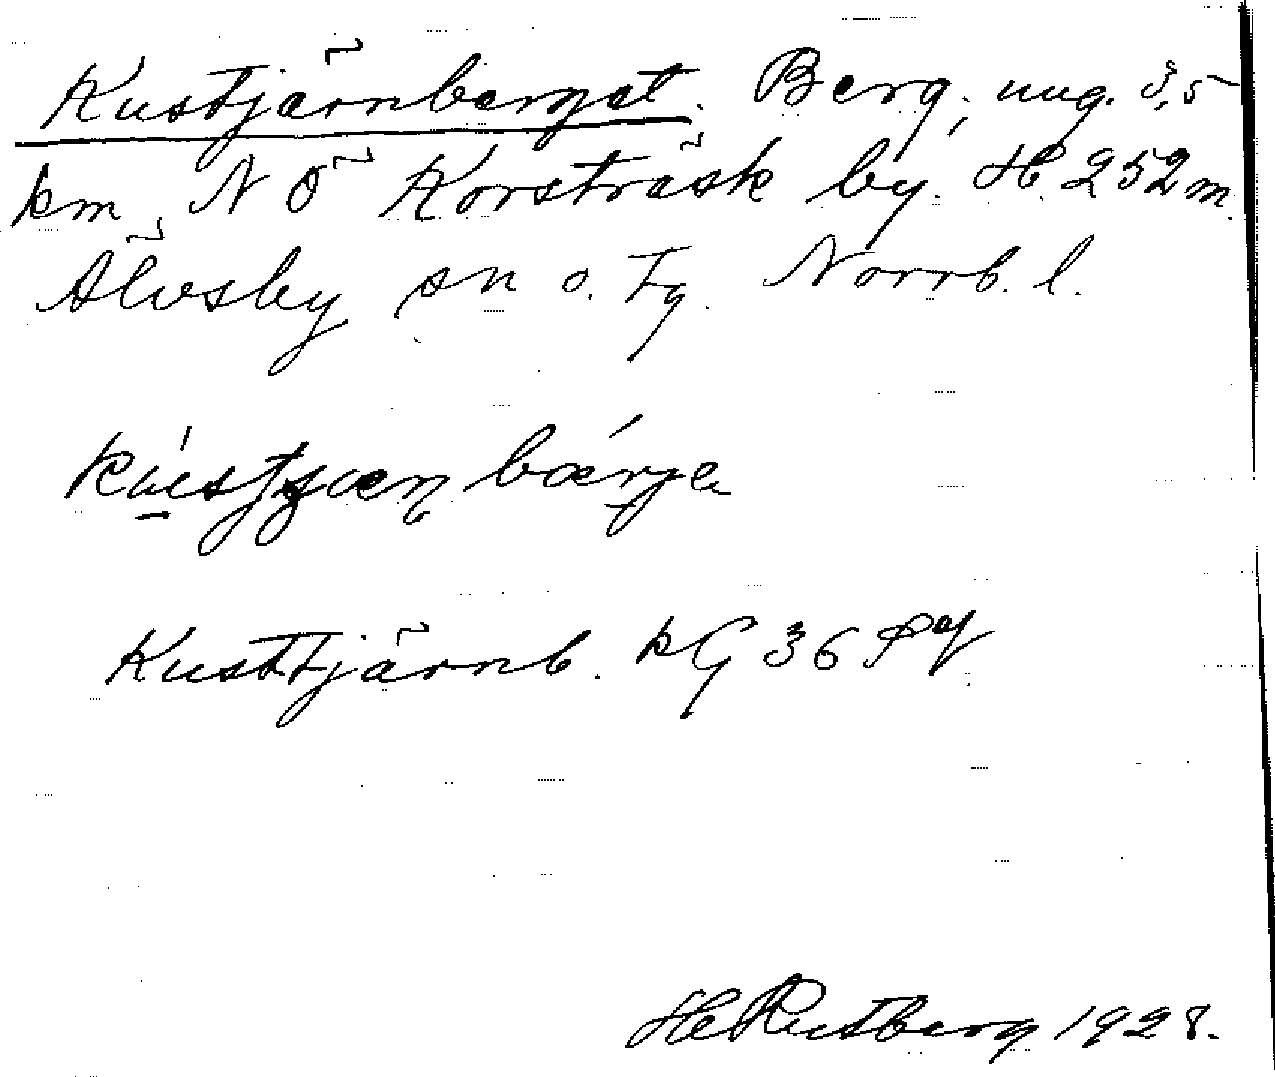 Kustjärnberget. Berg, ung. 3,5
km NÖ Korsträsk by. H. 252 m.
Älvsby sn o. tg. Norrb. l.
bærje
Kusttjärnb. kG 36
H Rutberg 1928.